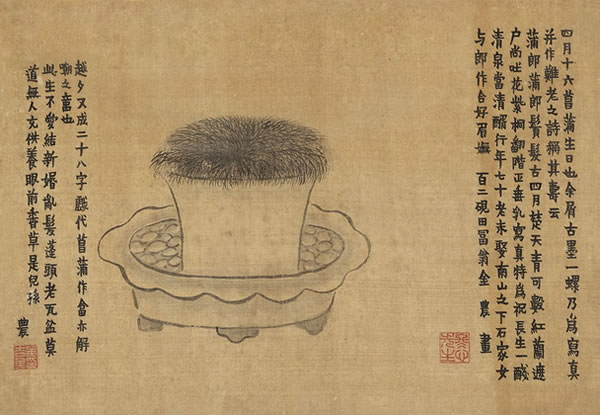 四月十六菖蒲生日也余屑古墨一螺乃爲寫真
并作難老之詩稱其壽云
蒲郎蒲郎鬚髮古四月楚天青可數紅蘭遮
户尚吐花紫桐翻階正垂乳寫真特爲祝長生一醆
清泉當清醑行年七十老未娶南山之下石家女
与郎作合好眉嫵 百二硯田冨翁金農畫
越夕又成二十八字戲代菖蒲作畣亦解
嘲之意也
此生不愛結新婚亂髮蓬頭老瓦盆莫
道無人充供養眼前香草是兒孫 農